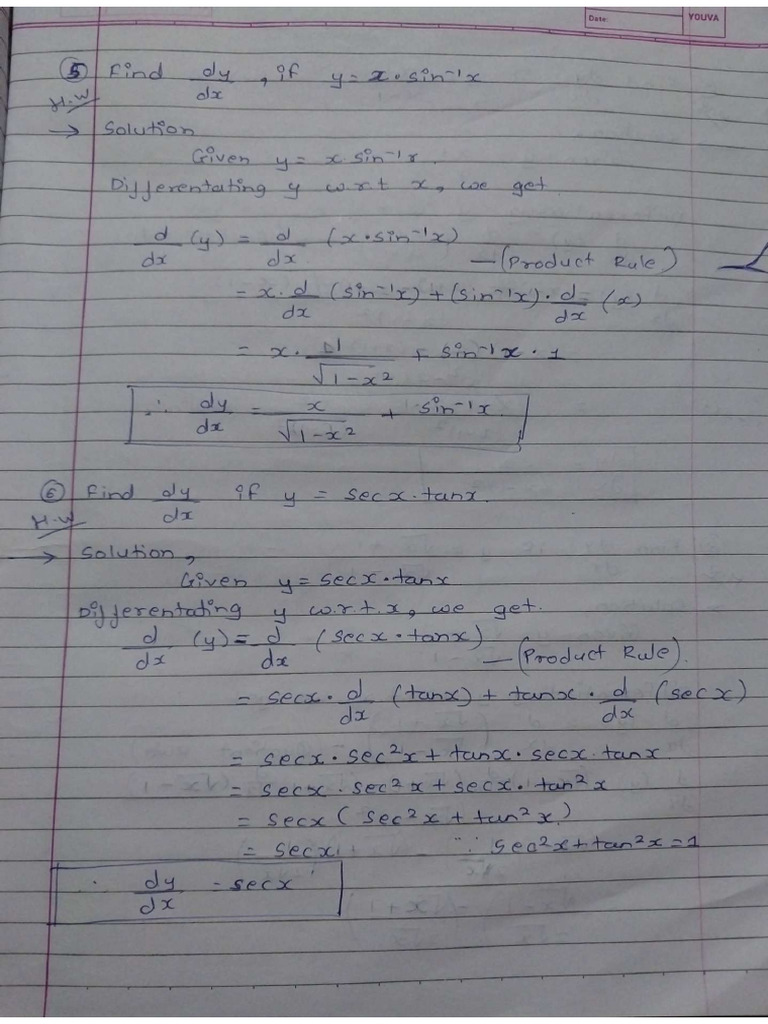 Date: YOUVA
⑤ Find dy/dx , if y = x · sin⁻¹x
H.W
→ Solution
Given y = x·sin⁻¹x.
Differentating y w.r.t x, we get
d/dx (y) = d/dx (x·sin⁻¹x)
—(Product Rule)
= x· d/dx (sin⁻¹x) + (sin⁻¹x)· d/dx (x)
= x· 1/√1-x² + sin⁻¹x · 1
∴ dy/dx = x/√1-x² + sin⁻¹x
⑥ Find dy/dx if y = secx·tanx.
H.W
→ Solution,
Given y = secx·tanx
Differentating y w.r.t.x, we get.
d/dx (y) = d/dx (secx·tanx)
—(Product Rule).
= secx· d/dx (tanx) + tanx · d/dx (secx)
= secx·sec²x + tanx·secx·tanx
= secx·sec²x + secx·tan²x
= secx (sec²x + tan²x)
= secx ∵ sec²x + tan²x = 1
∴ dy/dx = secx